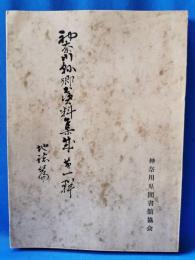 神奈川県郷土資料集成 第一輯
地誌篇
神奈川県図書館協会